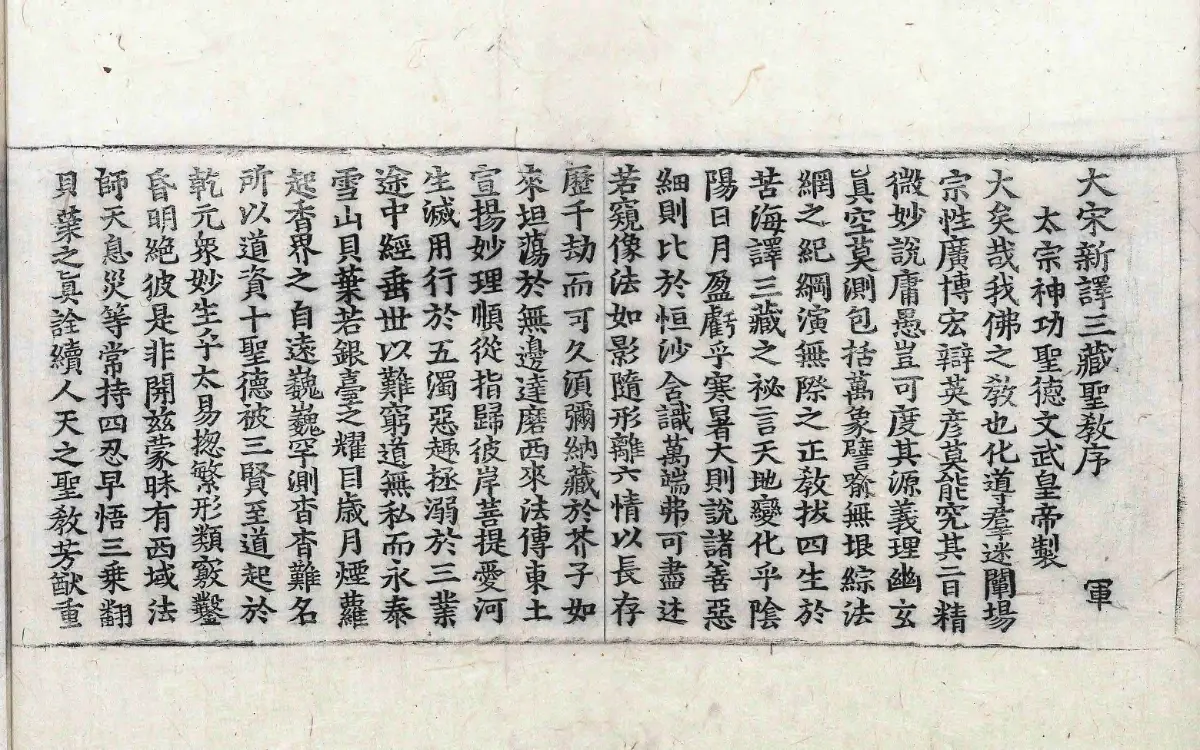 大宋新譯三藏聖教序 軍
太宗神功聖德文武皇帝製
大矣哉我佛之教也化導羣迷闡場
宗性廣博宏辯英彥莫能究其二日精
微妙說庸愚豈可度其源義理幽玄
眞空莫測包括萬象譬喻無垠綜法
網之紀綱演無際之正教拔四生於
苦海譯三藏之祕言天地變化乎陰
陽日月盈虧乎寒暑大則說諸善惡
細則比於恒沙含識萬端弗可盡述
若窺像法如影隨形離六情以長存
歷千劫而可久湏彌納藏於芥子如
來坦蕩於無邊達磨西來法傳東土
宣揚妙理順從指歸彼岸菩提愛河
生滅用行於五濁惡趣拯溺於三業
途中經垂世以難窮道無私而永泰
雪山貝葉若銀臺之耀目歳月煙蘿
起香界之自遠巍巍罕測杳杳難名
所以道資十聖德被三賢至道起於
乾元衆妙生乎太易揔繁形類竅鑿
昏明絕彼是非開兹蒙昧有西域法
師天息災等常持四忍早悟三乘翻
貝葉之眞詮續人天之聖教芳猷重